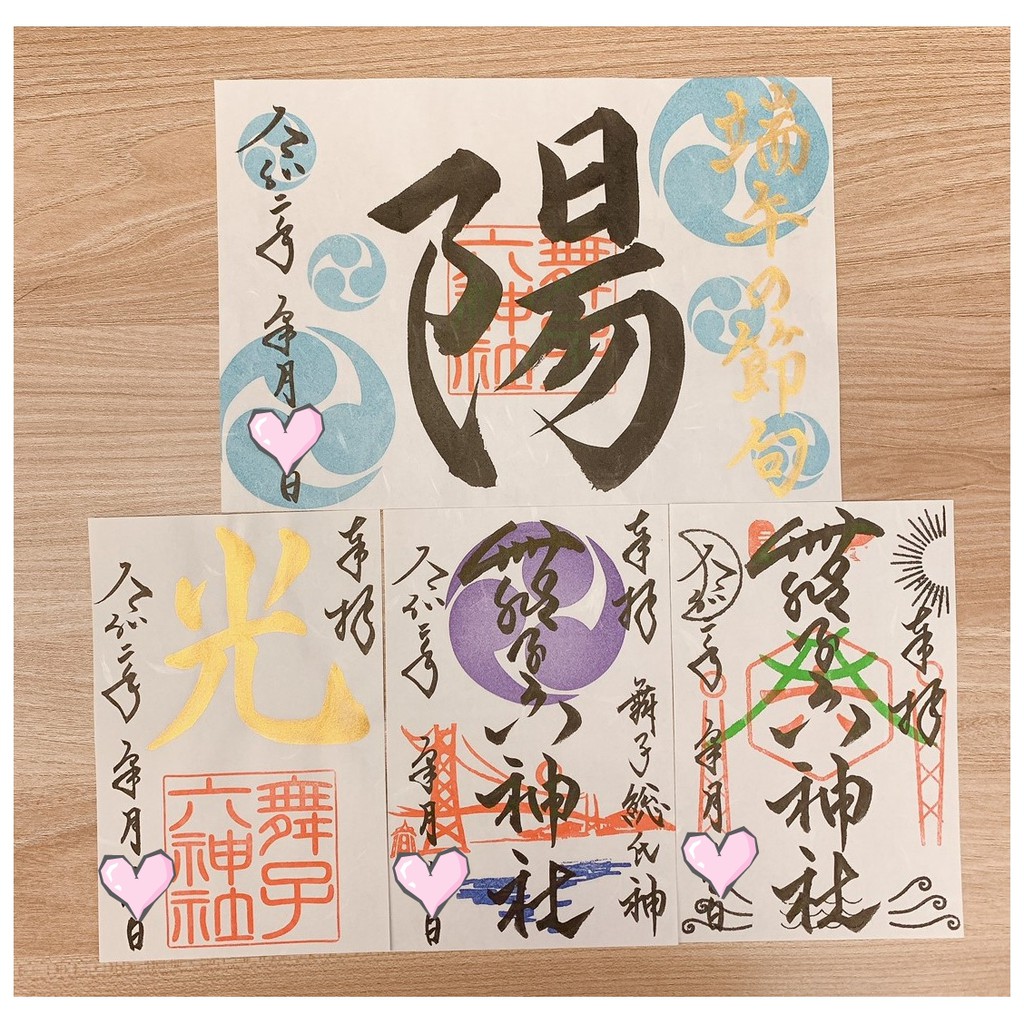 端午の節句
陽
舞子
六神社
令和二年 皐月 日
奉拝
光
舞子
六神社
令和二年 皐月 日
奉拝 舞子総氏神
舞子六神社
令和二年 皐月 日
奉拝
舞子六神社
令和二年 皐月 日